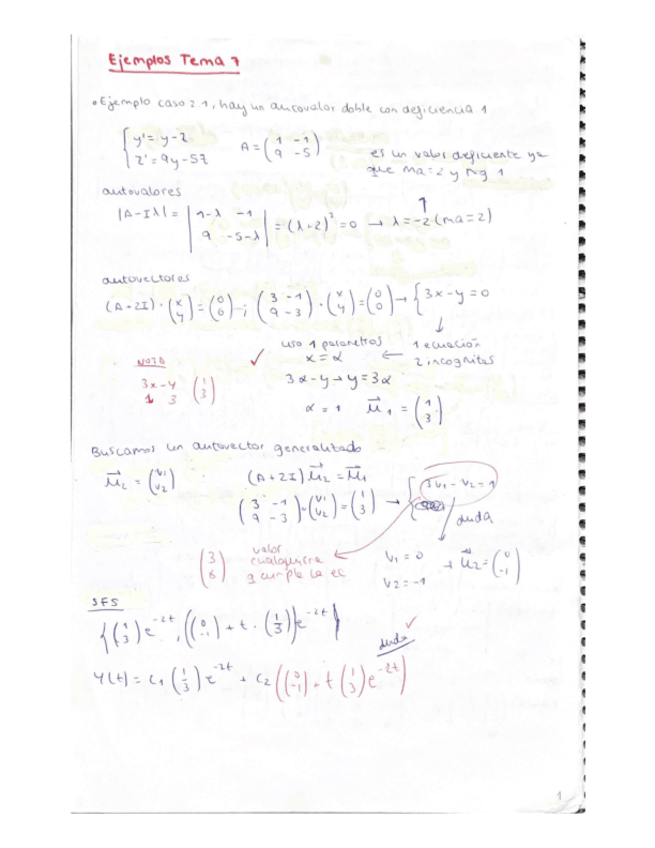 Ejemplos Tema 7
• Ejemplo caso 2.1, hay un autovalor doble con deficiencia 1
{ y' = y - z
z' = 9y - 5z
A = ( 1 -1
9 -5 )
es un valor deficiente ya
que ma = 2 y mg 1
autovalores
|A - Iλ| = | 1-λ -1
9 -5-λ | = (λ+2)² = 0 → λ = -2 (ma = 2)
autovectores
(A + 2I) · ( x y ) = ( 0 0 ) → ; ( 3 -1 9 -3 ) · ( x y ) = ( 0 0 ) → { 3x - y = 0
uso 1 parametros
x = α
←
1 ecuación
2 incognitas
3α - y → y = 3α
α = 1 μ⃗₁ = ( 1 3 )
NOTA
3x - y ( 1 3 )
1 3
✓
Buscamos un autovector generalizado
μ⃗₂ = ( v₁ v₂ )
(A + 2I) μ⃗₂ = μ⃗₁
( 3 -1 9 -3 ) · ( v₁ v₂ ) = ( 1 3 ) → { 3v₁ - v₂ = 1
duda
valor
cualquiera
q cumple la ec
v₁ = 0
v₂ = -1
→ μ⃗₂ = ( 0 -1 )
SFS
{ ( 1 3 ) e^-2t , ( ( 0 -1 ) + t · ( 1 3 ) ) e^-2t }
duda ✓
Y(t) = C₁ ( 1 3 ) e^-2t + C₂ ( ( 0 -1 ) + t ( 1 3 ) e^-2t )
1